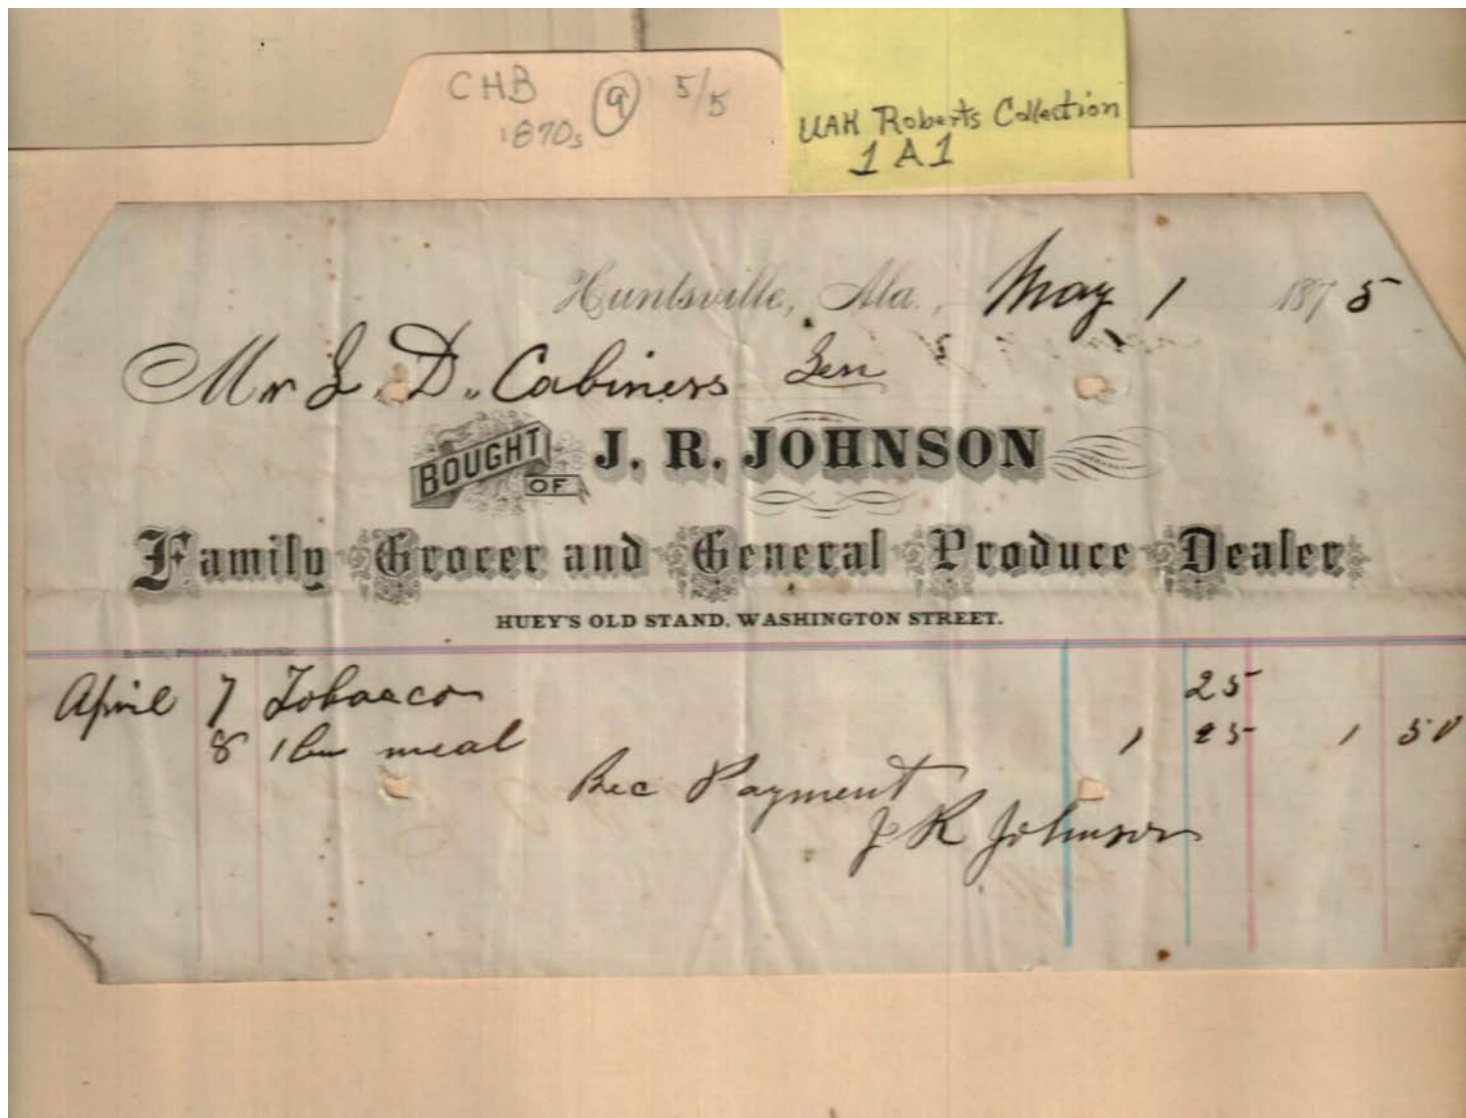 CHB 9 5/5
1870s
UAH Roberts Collection
1A1
Huntsville, Ala., May 1 1875
Mr D. Cabiners
BOUGHT OF J. R. JOHNSON
Family Grocer and General Produce Dealer
HUEY'S OLD STAND, WASHINGTON STREET.
April 7 Tobacco 25
8 1 bu meal 1 25 1 50
Rec Payment
J R Johnson